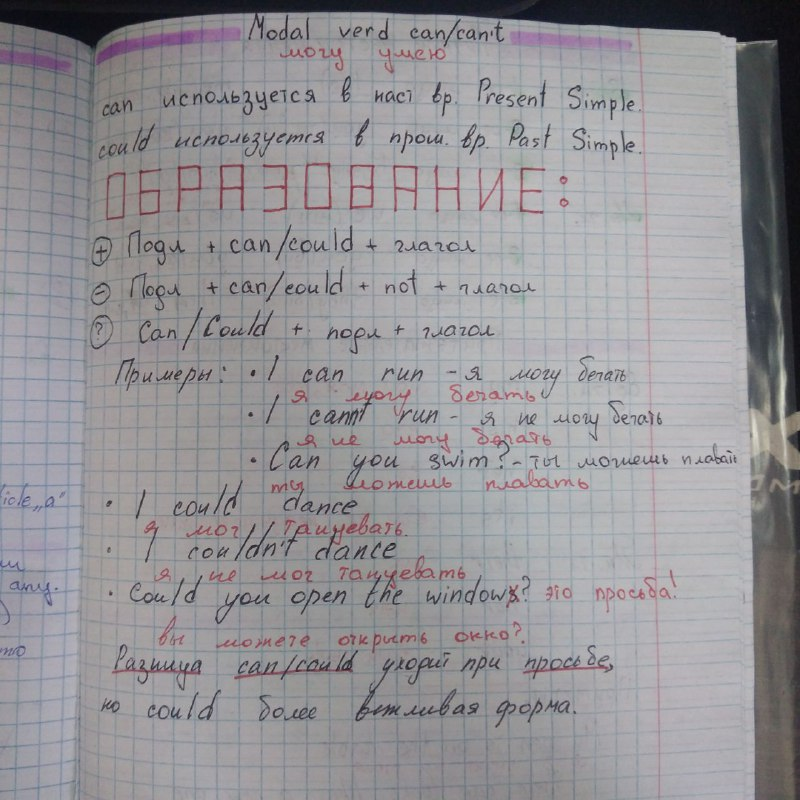 Modal verd can/can't
могу умею
can используется в наст вр. Present Simple.
could используется в прош. вр. Past Simple.
ОБРАЗОВАНИЕ:
+ Подл + can/could + глагол
- Подл + can/could + not + глагол
? Can/Could + подл + глагол
Примеры: • I can run - я могу бегать
я могу бегать
• I cann't run - я не могу бегать
я не могу бегать
• Can you swim? - ты можешь плавать
ты можешь плавать
• I could dance
я мог танцевать.
• I couldn't dance
я не мог танцевать
• Could you open the window? это просьба!
вы можете открыть окно?
Разница can/could уходит при просьбе,
но could более вежливая форма.
icle „a"
any.